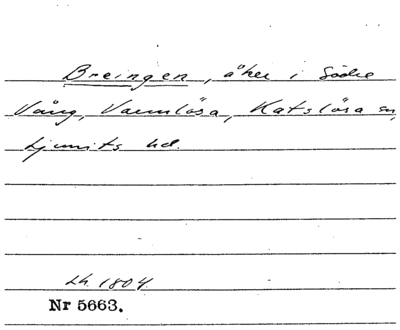 Breingen, åker i Södre
Vång, Vannlösa, Katslösa sn,
Ljunits hd.
Lh. 1804.
Nr 5663.